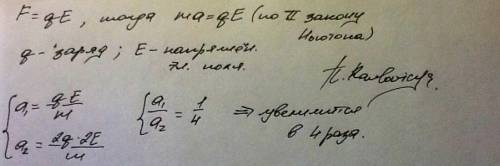 F = qE, тогда ma = qE (по II закону
Ньютона)
q - заряд ; E - напряжён.
эл. поля.
{ a₁ = qE/m
a₂ = 2q·2E/m
{ a₁/a₂ = 1/4 ⇒ увеличится
в 4 раза.